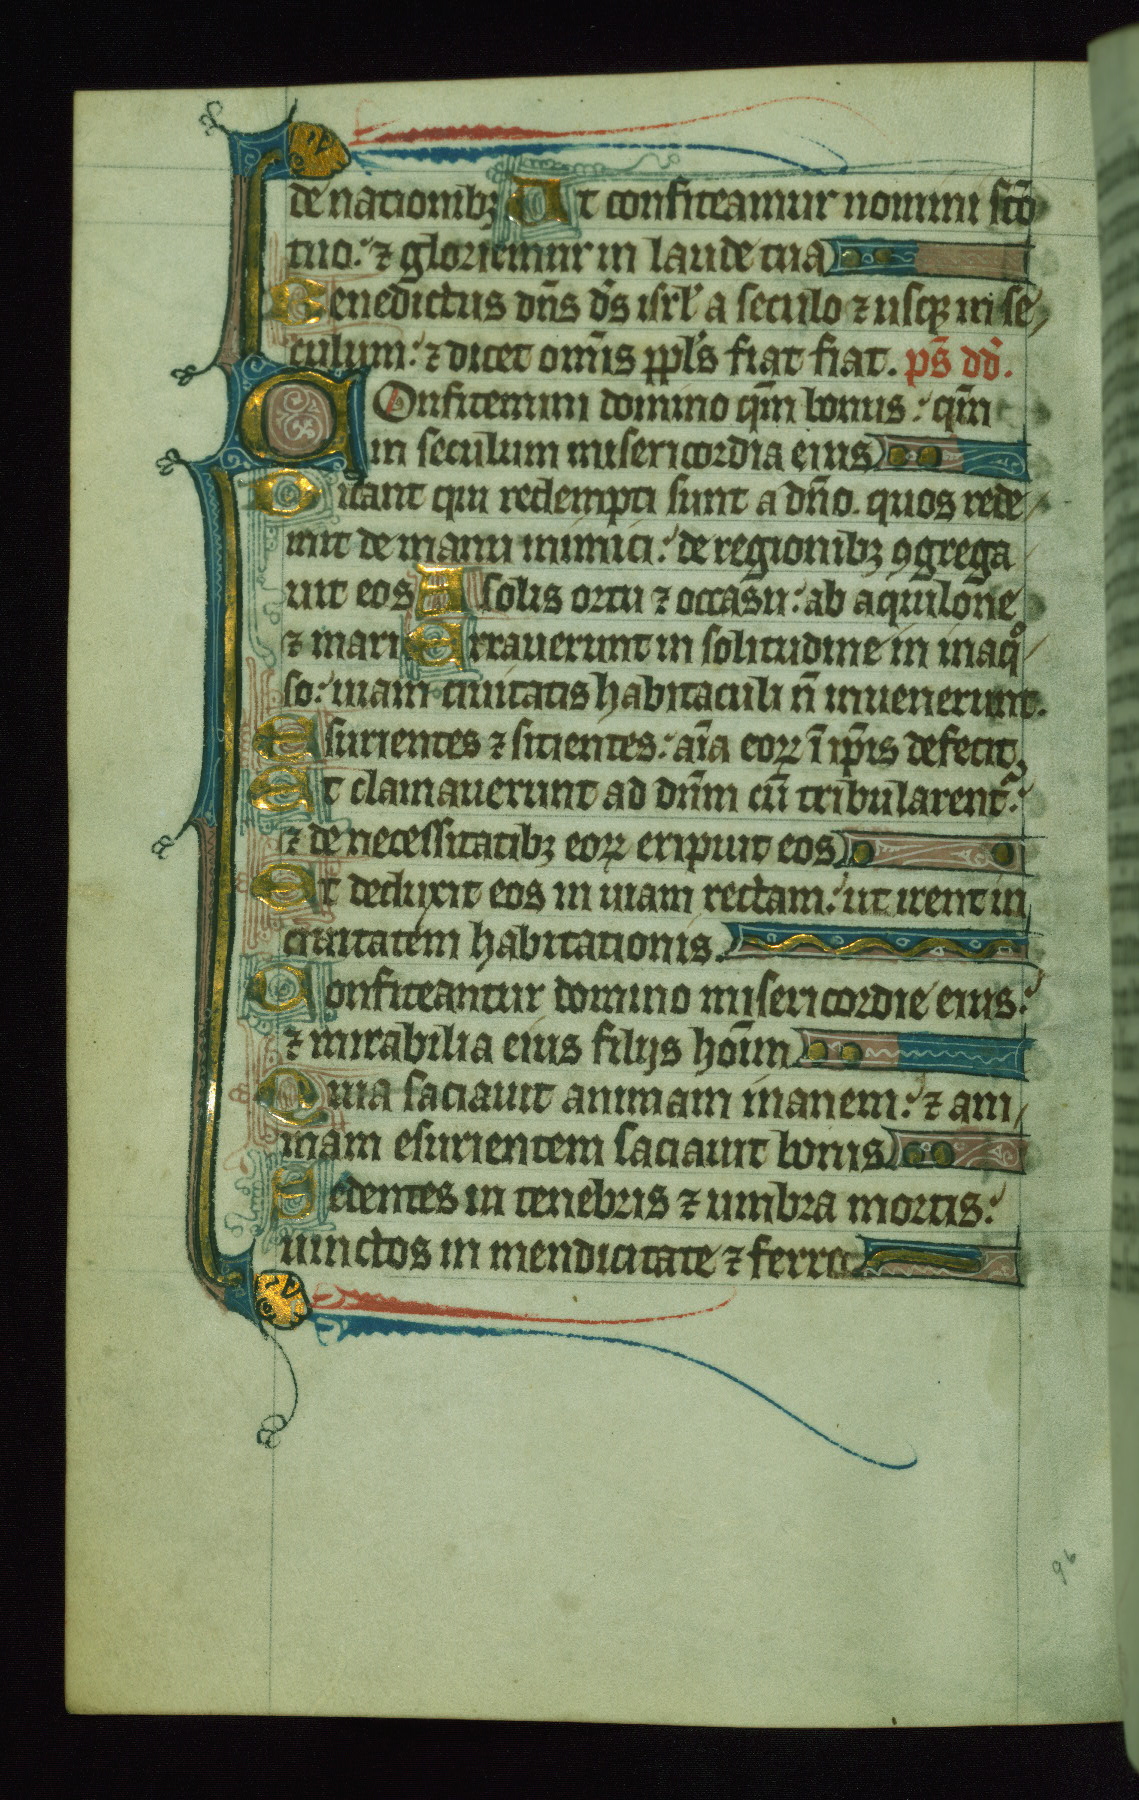 de nationibꝫ Ut confiteamur nomini sc̄o
tuo: ⁊ gloriemur in laude tua
Benedictus dn̄s d̄s isrl̄ a seculo ⁊ usqꝫ in se
culum: ⁊ dicet omīs ppl̄s fiat fiat. ps̄ dd̄.
COnfitemini domino qm̄ bonus: qm̄
in seculum misericordia eius
Dicant qui redempti sunt a dn̄o. quos rede
mit de manu inimici: de regionibꝫ ꝯgrega
uit eos A solis ortu ⁊ occasu: ab aquilone
⁊ mari Errauerunt in solitudine in inaqͦ
so: uiam ciuitatis habitaculi n̄ inuenerunt.
Esurientes ⁊ sitientes: aīa eoꝝ ī ip̄is defecit
Et clamauerunt ad dn̄m cū tribularent᷑:
⁊ de necessitatibꝫ eoꝝ eripuit eos
Et deduxit eos in uiam rectam: ut irent in
ciuitatem habitationis.
Confiteantur domino misericordie eius:
⁊ mirabilia eius filijs hoīm
Quia saciauit animam inanem: ⁊ ani
mam esurientem saciauit bonis
Sedentes in tenebris ⁊ umbra mortis:
uinctos in mendicitate ⁊ ferro
96